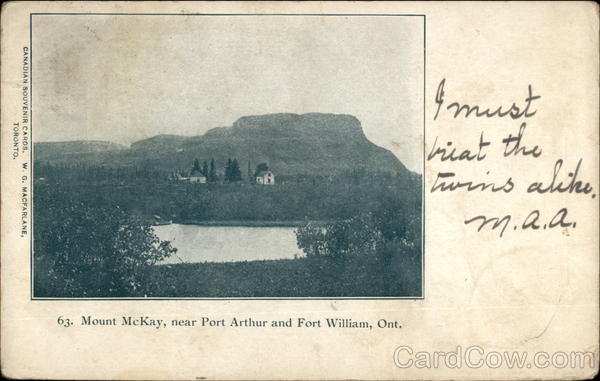 CANADIAN SOUVENIR CARDS. W. G. MACFARLANE,
TORONTO.
I must
treat the
twins alike.
M.A.A.
63. Mount McKay, near Port Arthur and Fort William, Ont.
CardCow.com